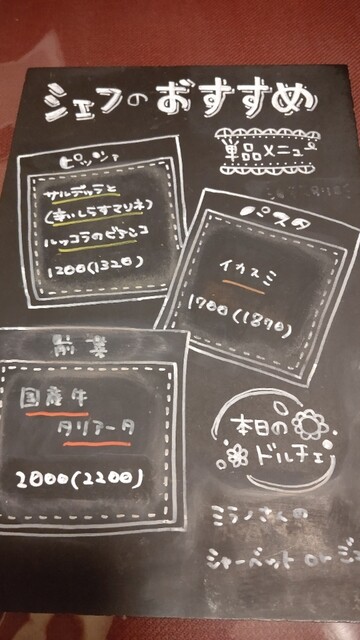 シェフのおすすめ
単品メニュー
ピッツァ
サルデッラと
(辛いしらすマリネ)
ルッコラのビアンコ
1200(1320)
パスタ
イカスミ
1700(1870)
前菜
国産牛
タリアータ
2000(2200)
本日の
ドルチェ
ミラノさんの
シャーベット or ジェ